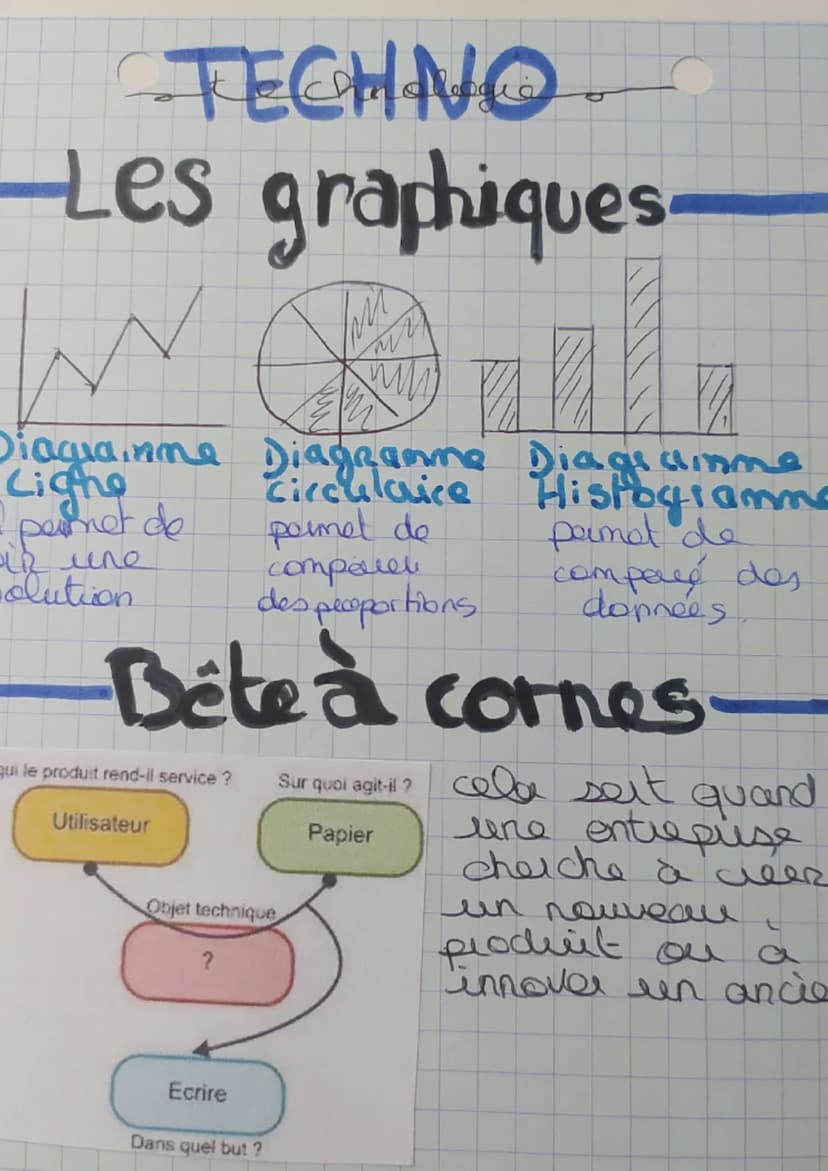 TECHNO
technologie
Les graphiques
Diagramme
Ligne
permet de
une
olution
Diagramme
Circulaire
permet de
comparer
des proportions
Diagramme
Histogramme
permet de
comparé des
données.
Bête à cornes
qui le produit rend-il service ?
Sur quoi agit-il ?
Utilisateur
Papier
Objet technique
?
Ecrire
Dans quel but ?
cela sert quand
une entreprise
cherche à créer
un nouveau
produit ou à
innover un ancie